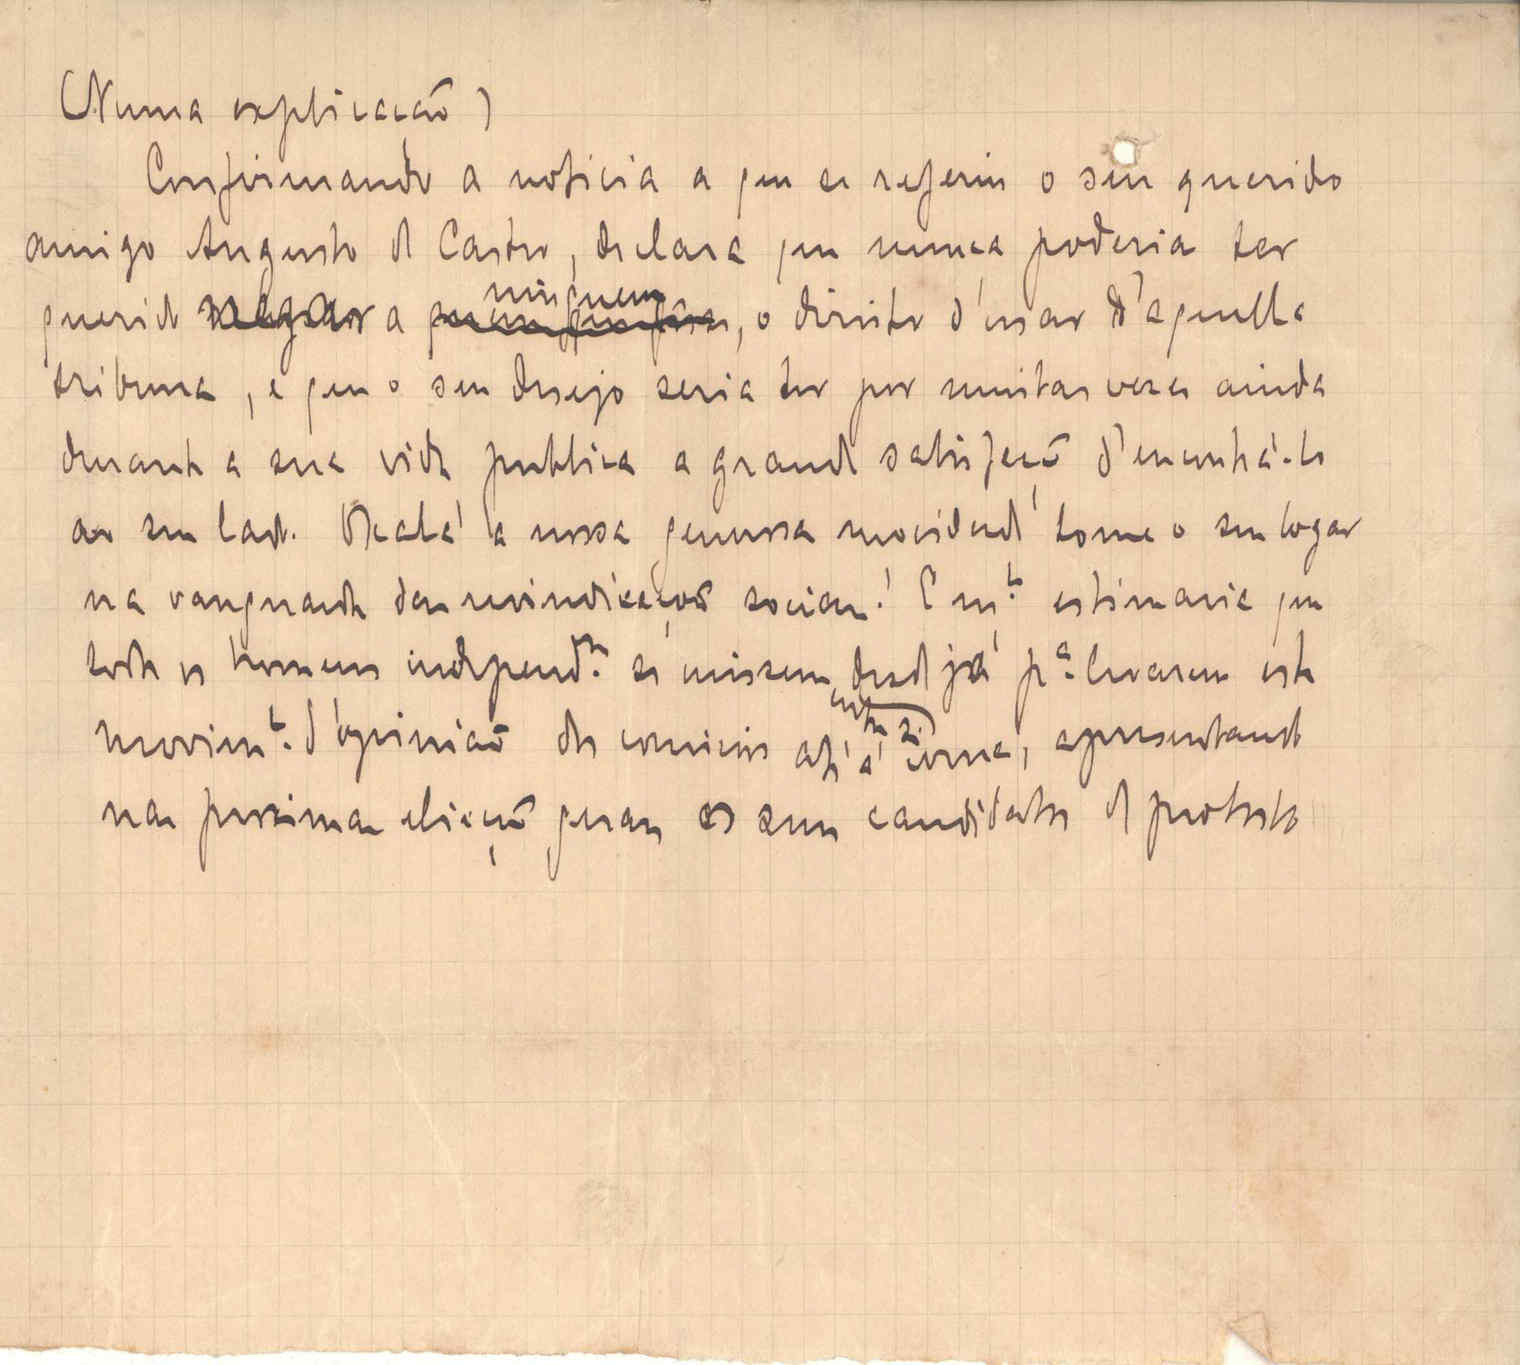 (Numa explicação)
Confirmando a noticia a que se referiu o seu querido
amigo Augusto de Castro, declara que nunca poderia ter
querido negar a ninguem, o direito d'usar d'aquella
tribuna, e que o seu desejo seria ter por muitas vezes ainda
durante a sua vida publica a grande satisfação d'encontrá-lo
ao seu lado. Oxalá a nossa generosa mocidade tome o seu logar
na vanguarda das reivindicações sociaes! E m.to estimaria que
todos os homens independ.tes se unissem entre si desde já p.a levarem este
movim.to d'opinião dos comicios até á urna, apresentando
nas proximas eleições geraes os seus candidatos de protesto